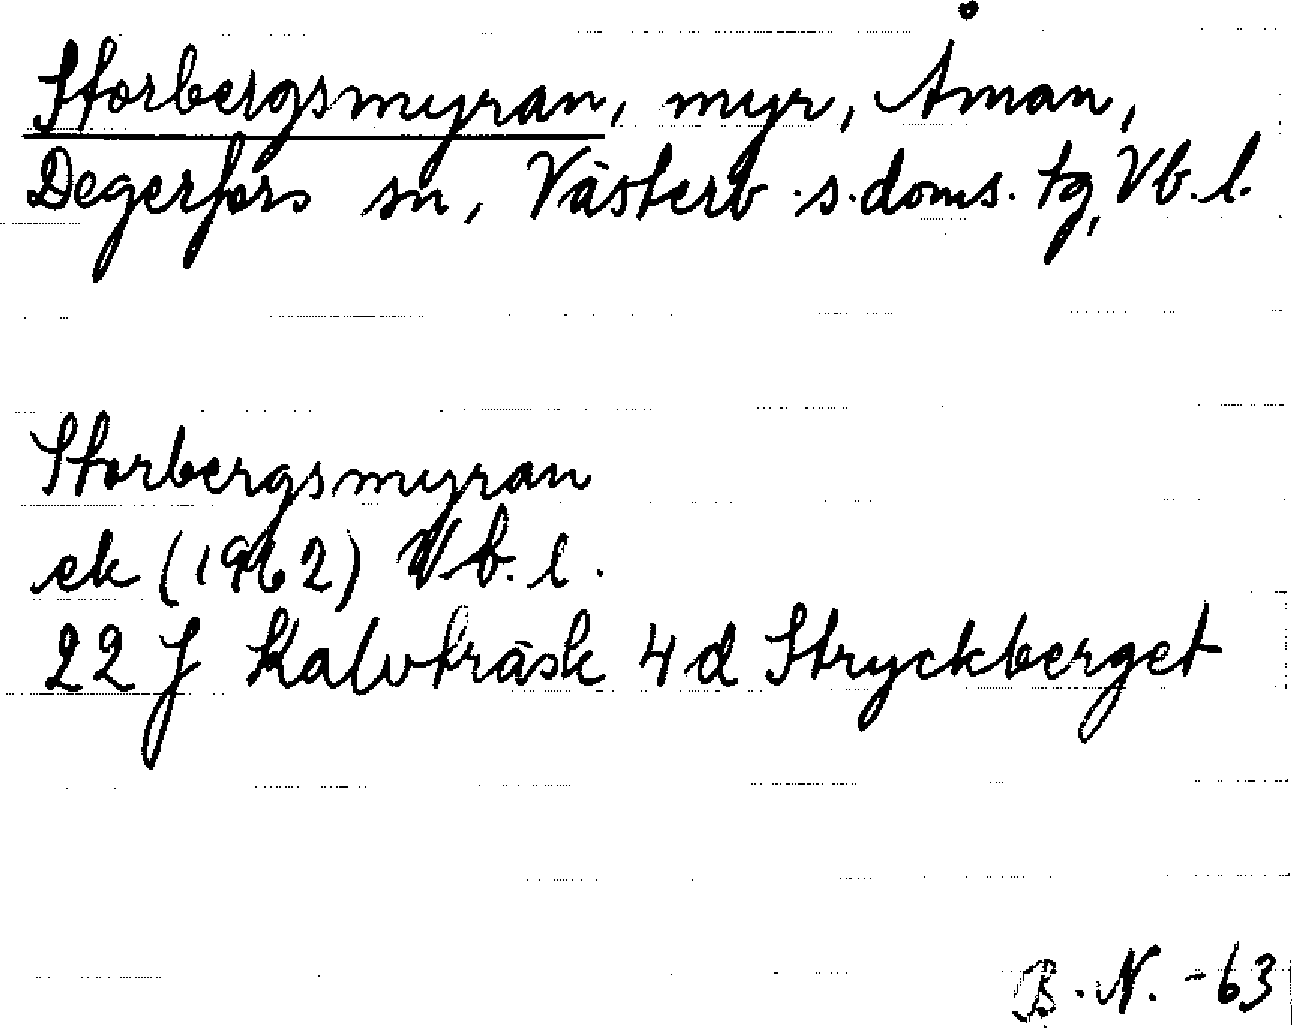 Storbergsmyran, myr, Åman,
Degerfors sn, Västerb. s. doms. tg, Vb. l.
Storbergsmyran
ek (1962) Vb. l.
22 J Kalvträsk 4 d Stryckberget
B. N. -63